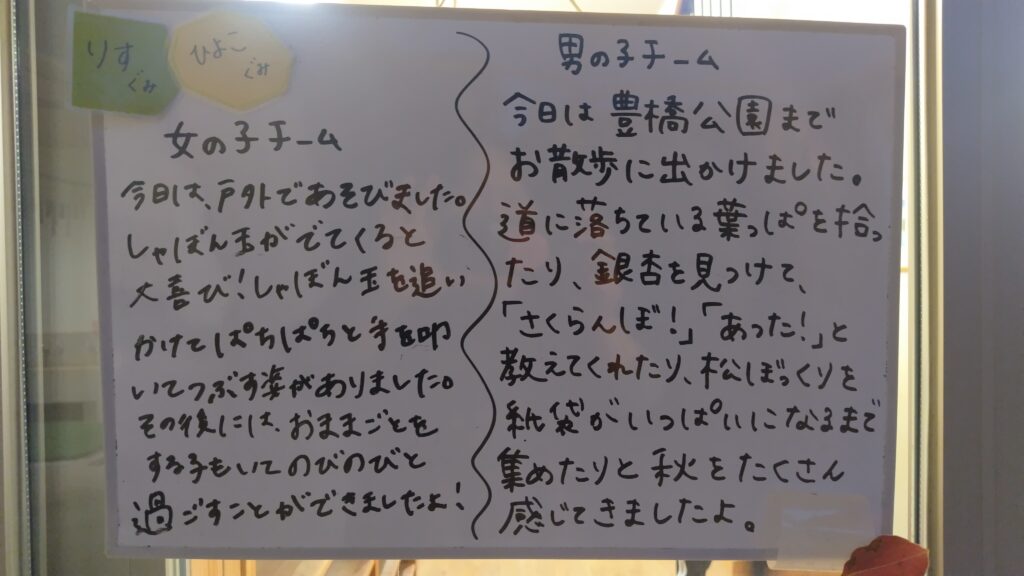 りす
ぐみ
ひよこ
ぐみ
女の子チーム
今日は、戸外であそびました。
しゃぼん玉がでてくると
大喜び!しゃぼん玉を追い
かけてぱちぱちと手を叩
いてつぶす姿がありました。
その後には、おままごとを
する子もいてのびのびと
過ごすことができましたよ!
男の子チーム
今日は豊橋公園まで
お散歩に出かけました。
道に落ちている葉っぱを拾っ
たり、銀杏を見つけて、
「さくらんぼ!」「あった!」と
教えてくれたり、松ぼっくりを
紙袋がいっぱいになるまで
集めたりと秋をたくさん
感じてきましたよ。